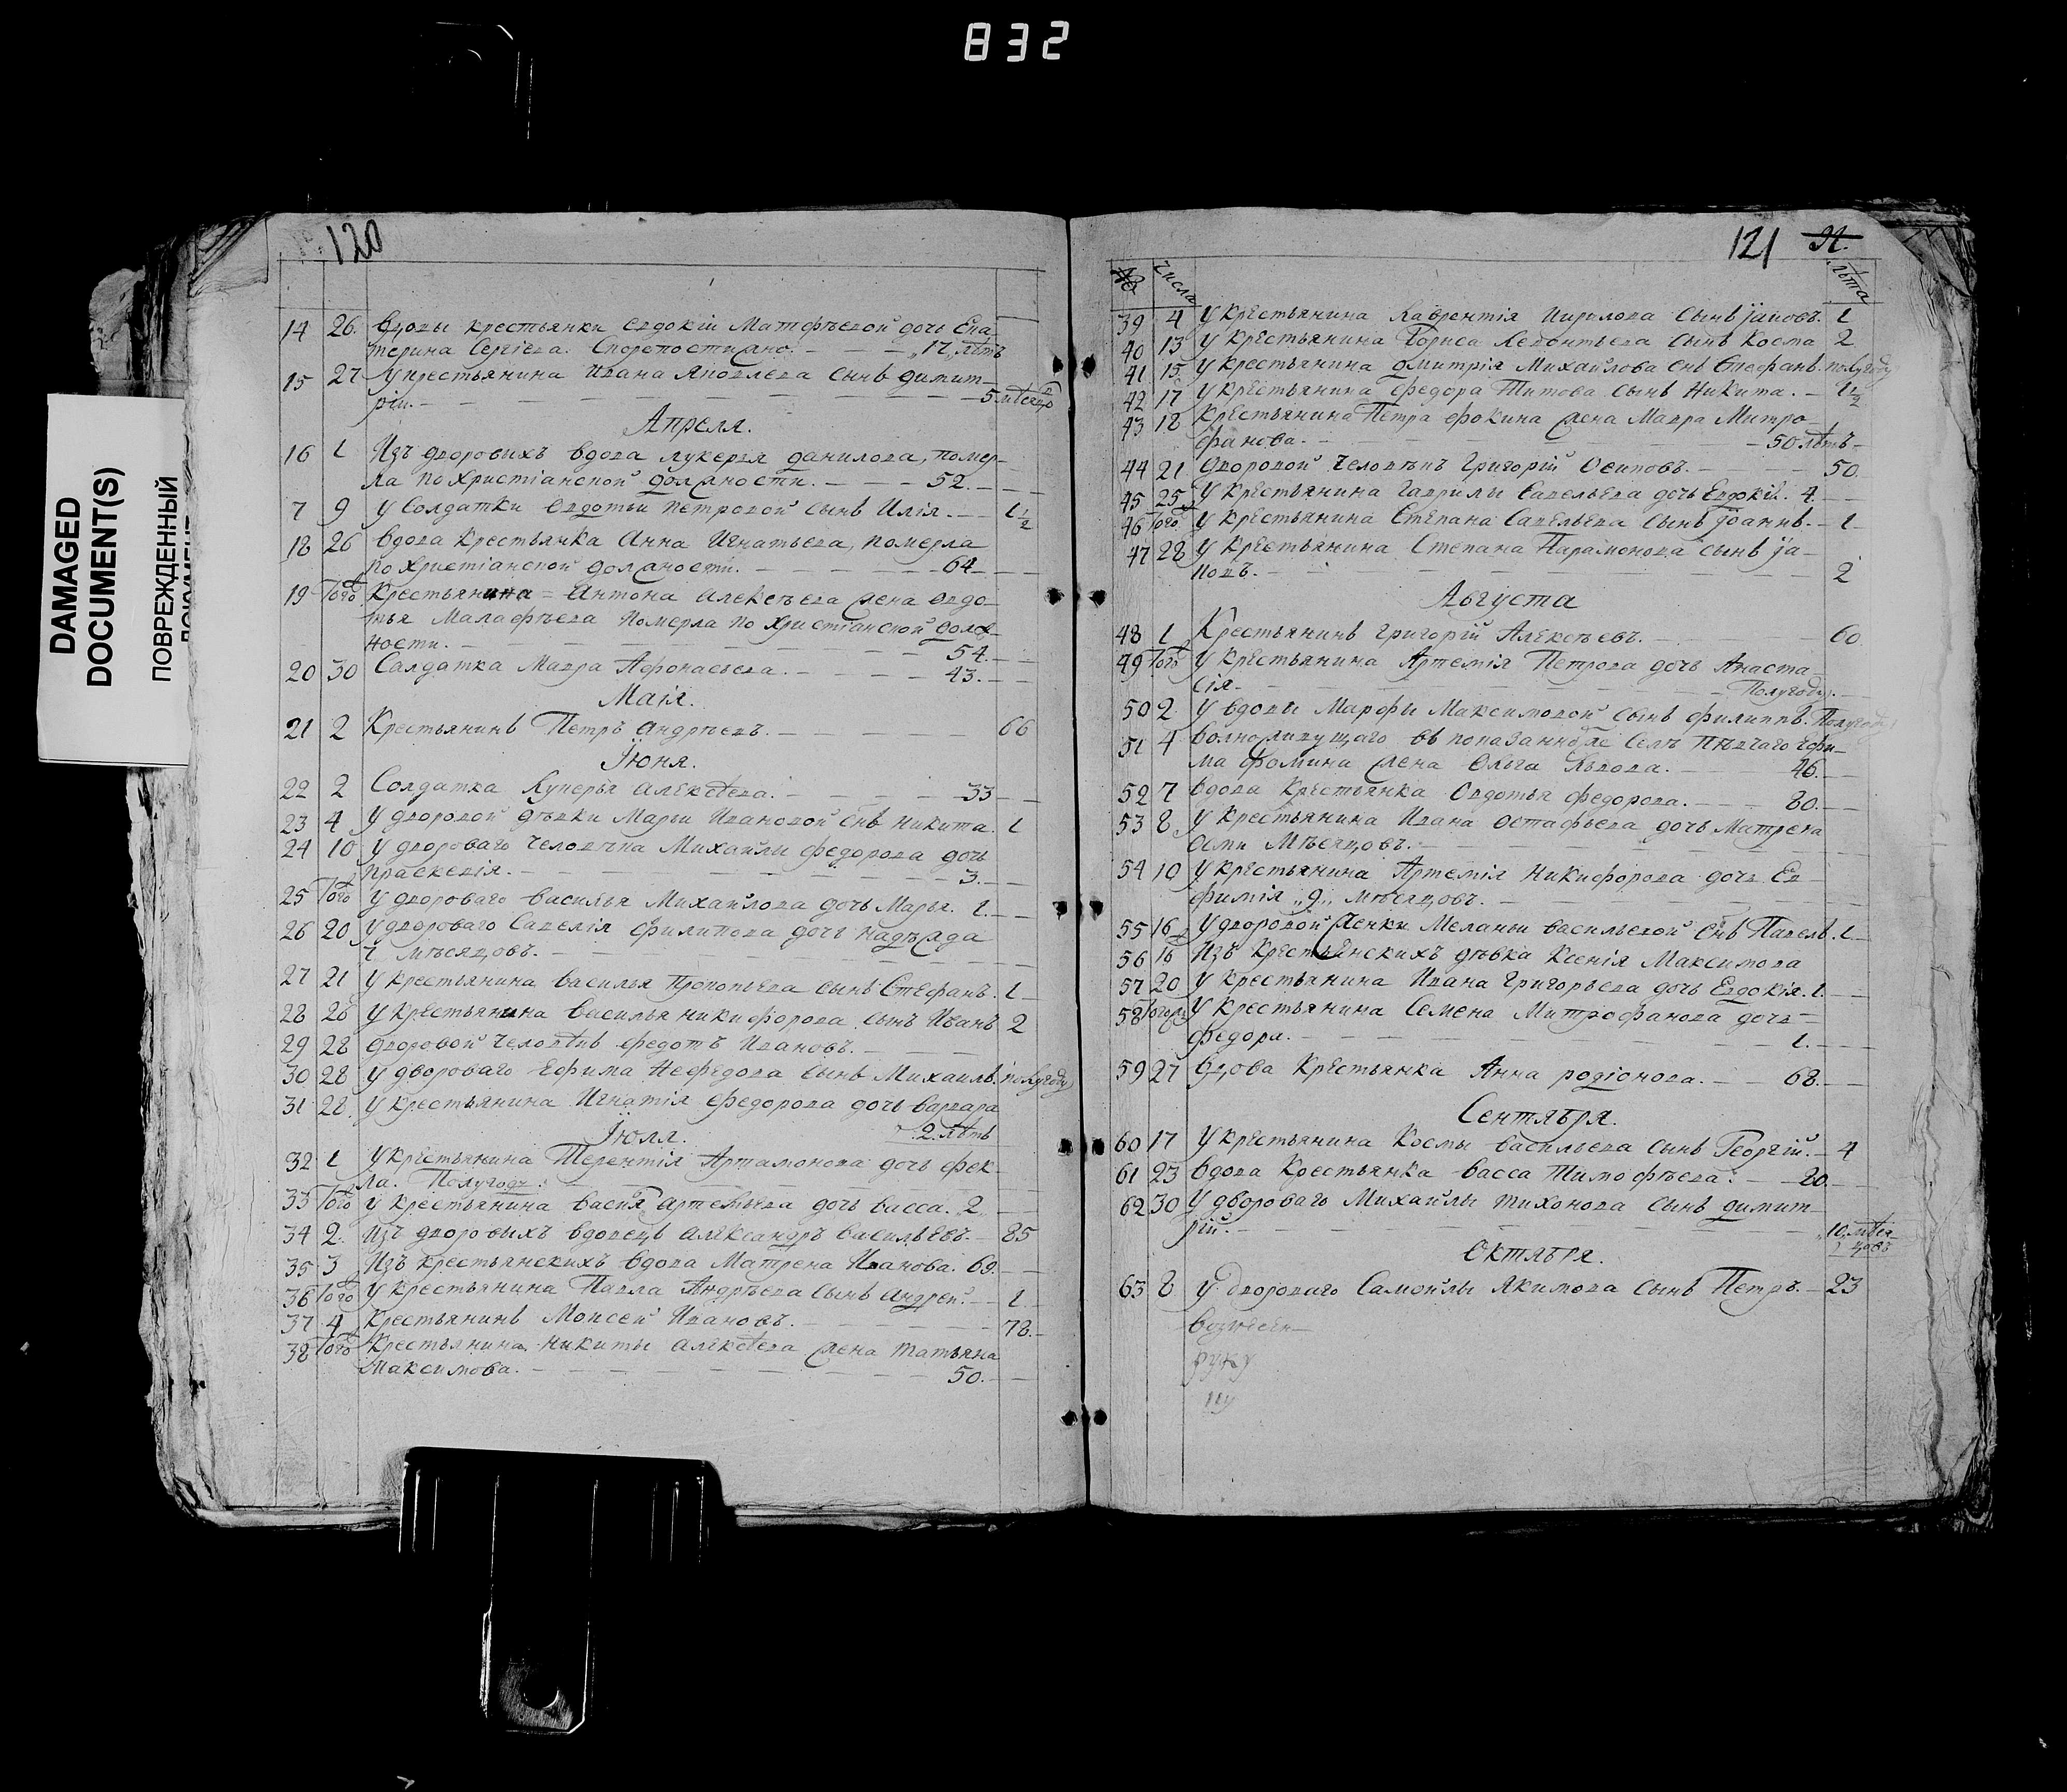 832
DAMAGED
DOCUMENT(S)
ПОВРЕЖДЕННЫЙ
120
14 26. вдовы крестьянки Евдокіи Матфѣевой дочь Ека
терина Сергіева. Скоропостижно. 17 лѣтъ
15 27 у крестьянина Ивана Яковлева сынъ Димит-
рій. 5 мѣсяцо
Апрелл.
16 1 Изъ дворовыхъ вдова Лукерья Данилова, помер-
ла по Христіанской должности. 52.
7 9 у Солдатки Евдотьи Петровой сынъ Илія. 1 1/2
18 26 вдова Крестьянка Анна Игнатьева, померла
по Христіанской должности. 64
19 Того Крестьянина Антона Алексѣева жена Евдо-
тья Малафѣева померла по Христіанской долж-
ности. 54.
20 30 Салдатка Мавра Афонасьева. 43.
Маія.
21 2 Крестьянинъ Петръ Андрѣевъ. 66
Іюня.
22 2 Солдатка Лукерья Алексѣева. 33
23 4 у дворовой дѣвки Марьи Ивановой снъ Никита. 1
24 10 у двороваго человѣка Михайлы Федорова дочь
Праскевія. 3.
25 Того у двороваго Василья Михайлова дочь Марья. 1.
26 20 у двороваго Савелія Филипова дочь надѣжда
7 мѣсяцовъ.
27 21 у крестьянина Василья Прокопьева сынъ Стефанъ. 1
28 26 у Крестьянина Василья Никифорова сынъ Иванъ 2
29 28 дворовой человѣкъ Федотъ Ивановъ.
30 28 у двороваго Ефима Нефедова сынъ Михаилъ. полугоду
31 28. у крестьянина Игнатія Федорова дочь Варвара
2 лѣтъ
Іюля.
32 1 у крестьянина Терентія Артамонова дочь Фек
ла. Полугоду.
33 Того у крестьянина Василья Артемьева дочь Васса. 2
34 2. Изъ дворовыхъ вдовецъ Александръ Васильевъ. 85
35 3 Изъ крестьянскихъ вдова Матрена Иванова. 69.
36 Того у крестьянина Павла Андрѣева сынъ Андрей. 1
37 4 Крестьянинъ Моисей Ивановъ. 78.
38 Того Крестьянина Никиты Алексѣева жена Татьяна
Максимова. 50.
121
№ числа лѣта
39 4 у крестьянина Лаврентія Кирилова сынъ Іаковъ. 1
40 13 у крестьянина Бориса Леонтьева сынъ Косма 2
41 15 у крестьянина Дмитрія Михайлова снъ Стефанъ. полугоду
42 17 у крестьянина Федора Титова сынъ Никита. 1 1/2
43 18 Крестьянина Петра Фокина жена Мавра Митро
фанова. 50 лѣтъ
44 21 Дворовой человѣкъ Григорій Осиповъ. 50.
45 25 у крестьянина Гаврилы Савельева дочь Евдокія. 4.
46 Того у крестьянина Степана Савельева сынъ Іоаннъ. 1
47 28 у крестьянина Степана Парамонова сынъ Іа-
ковъ. 2
Августа
48 1 Крестьянинъ Григорій Алексѣевъ. 60
49 Того у крестьянина Артемія Петрова дочь Анаста
сія. Полугоду.
50 2 у вдовы Марфы Максимовой сынъ Филиппъ. Полугоду
51 4 волноживущаго въ показанномже селѣ пѣвчаго Ефи-
ма Фомина жена Ольга Львова. 46.
52 7 вдова Крестьянка Евдотья Федорова. 80.
53 8 у крестьянина Ивана Остафьева дочь Матрена
осми мѣсяцовъ.
54 10 у крестьянина Артемія Никифорова дочь Ев
фимія „9„ мѣсяцовъ.
55 16 у дворовой женки Меланьи Васильевой снъ Павелъ. 1
56 16 Изъ Крестьянскихъ дѣвка Ксенія Максимова
57 20 у крестьянина Ивана Григорьева дочь Евдокія. 1.
58 Того у крестьянина Семена Митрофанова дочь
Федора. 1.
59 27 вдова Крестьянка Анна Родіонова. 68.
Сентября.
60 17 у крестьянина Космы Васильева сынъ Георгій. 4
61 23 вдова Крестьянка Васса Тимофѣева. 20.
62 30 у двороваго Михайлы Тихонова сынъ Димит
рій. 10 мѣся
цовъ
Октября.
63 8 у двороваго Самойлы Якимова сынъ Петръ. 23
руку